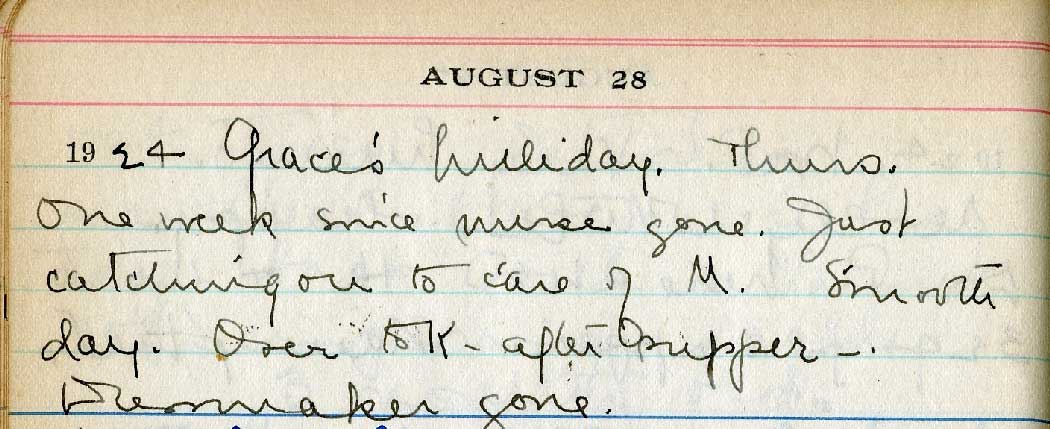 AUGUST 28
1924 Grace's holiday. Thurs.
One week since nurse gone. Just
catching on to care of M. Smooth
day. Over to K- after supper -.
Dressmaker gone.